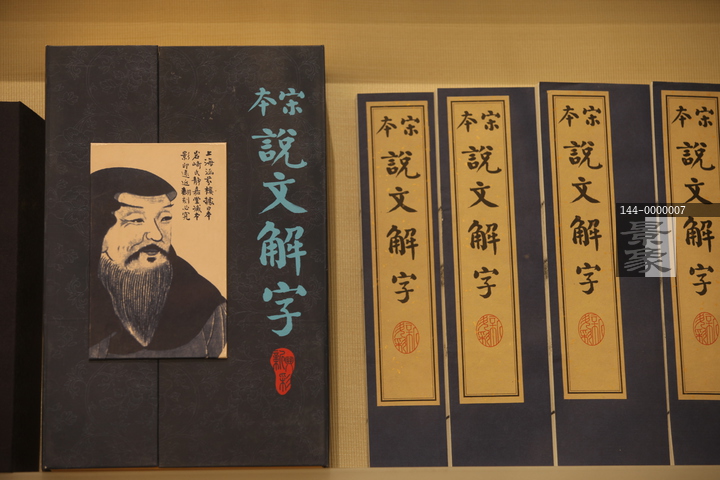 宋本
說文解字
上海涵芬樓借日本
岩崎氏靜嘉堂藏本
景印遠近翻刻必究
宋本
說文解字
宋本
說文解字
宋本
說文解字
宋本
說文解字
144-0000007
景象